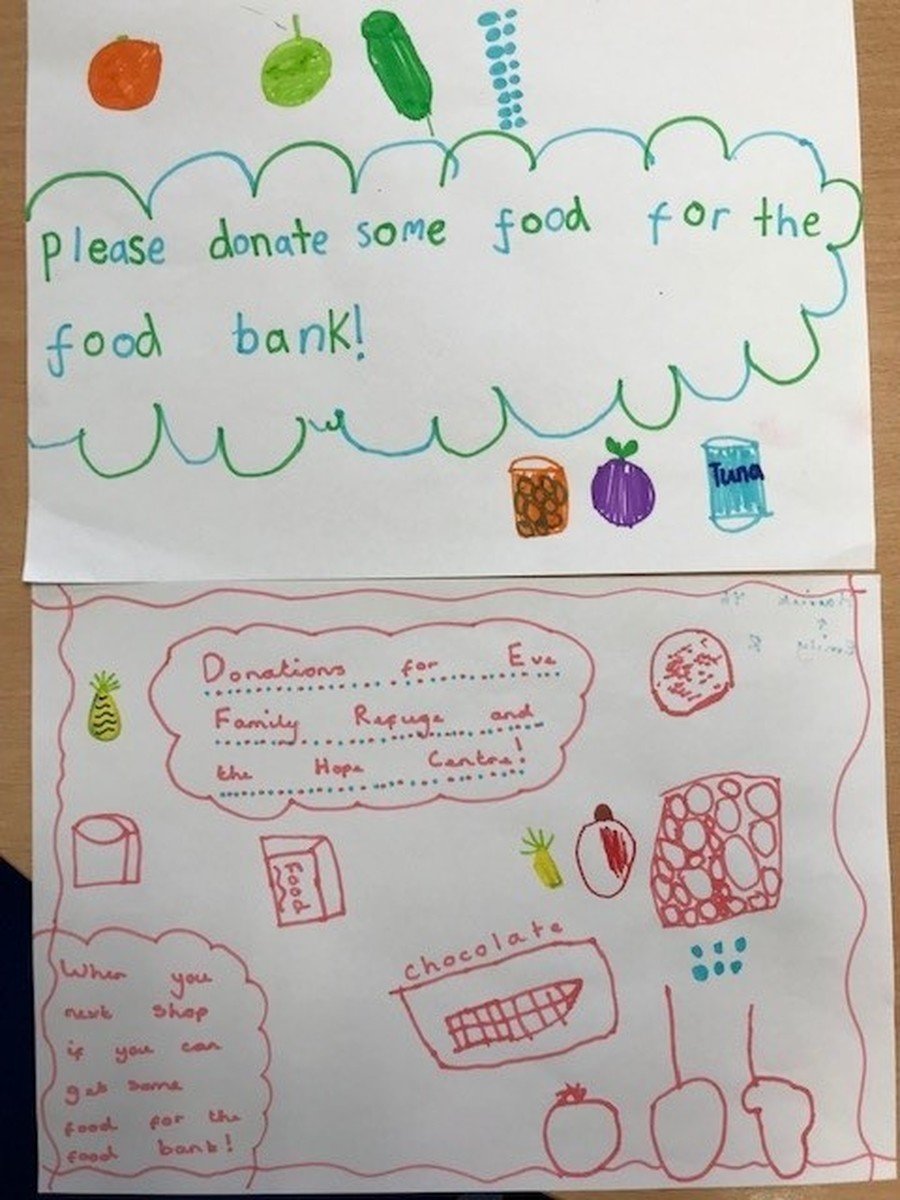 Please donate some food for the
food bank!
Tuna
Donations for Eve
Family Refuge and
the Hope Centre!
Food
chocolate
When you
next shop
if you can
get some
food for the
food bank!